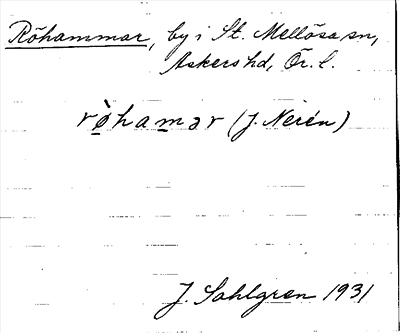 Röhammar, by i St. Mellösa sn,
Askers hd, Ör. l.
rö̀hamar (J. Neren)
J. Sahlgren 1931